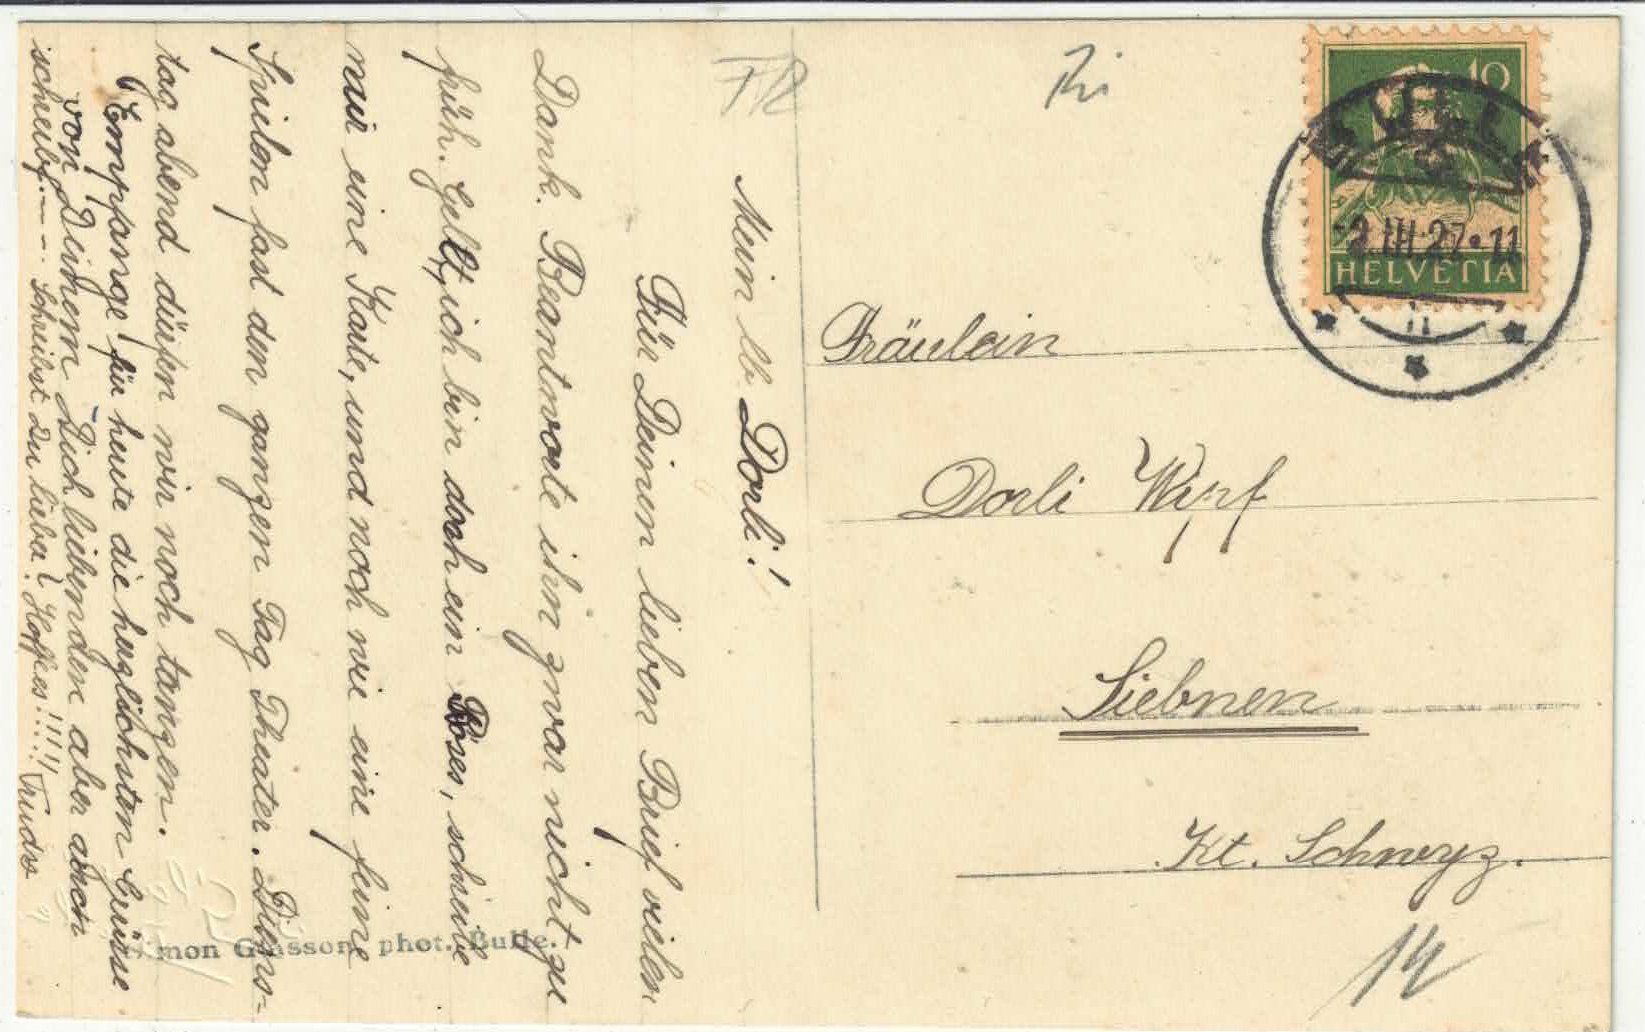 Mein lb. Dorli!
Für Deinen lieben Brief vielen
Dank. Beantworte ihn zwar nicht zu
früh. Gellt, ich bin doch ein Böses, schreibe
nur eine Karte, und noch nie eine feine
Spielen fast den ganzen Tag Theater. Diens-
tag abend dürfen wir noch tanzen.
Empfange für heute die herzlichsten Grüsse
von Deinem Dich liebenden aber
schreibf.--- Schreibst Du lieber? Hoff es!!!! Trudi
Simon Glasson, phot. Bulle.
FR
Ri
10
BULLE
-2.III.27-11
HELVETIA
Fräulein
Dorli Wipf
Siebnen
Kt. Schwyz.
14